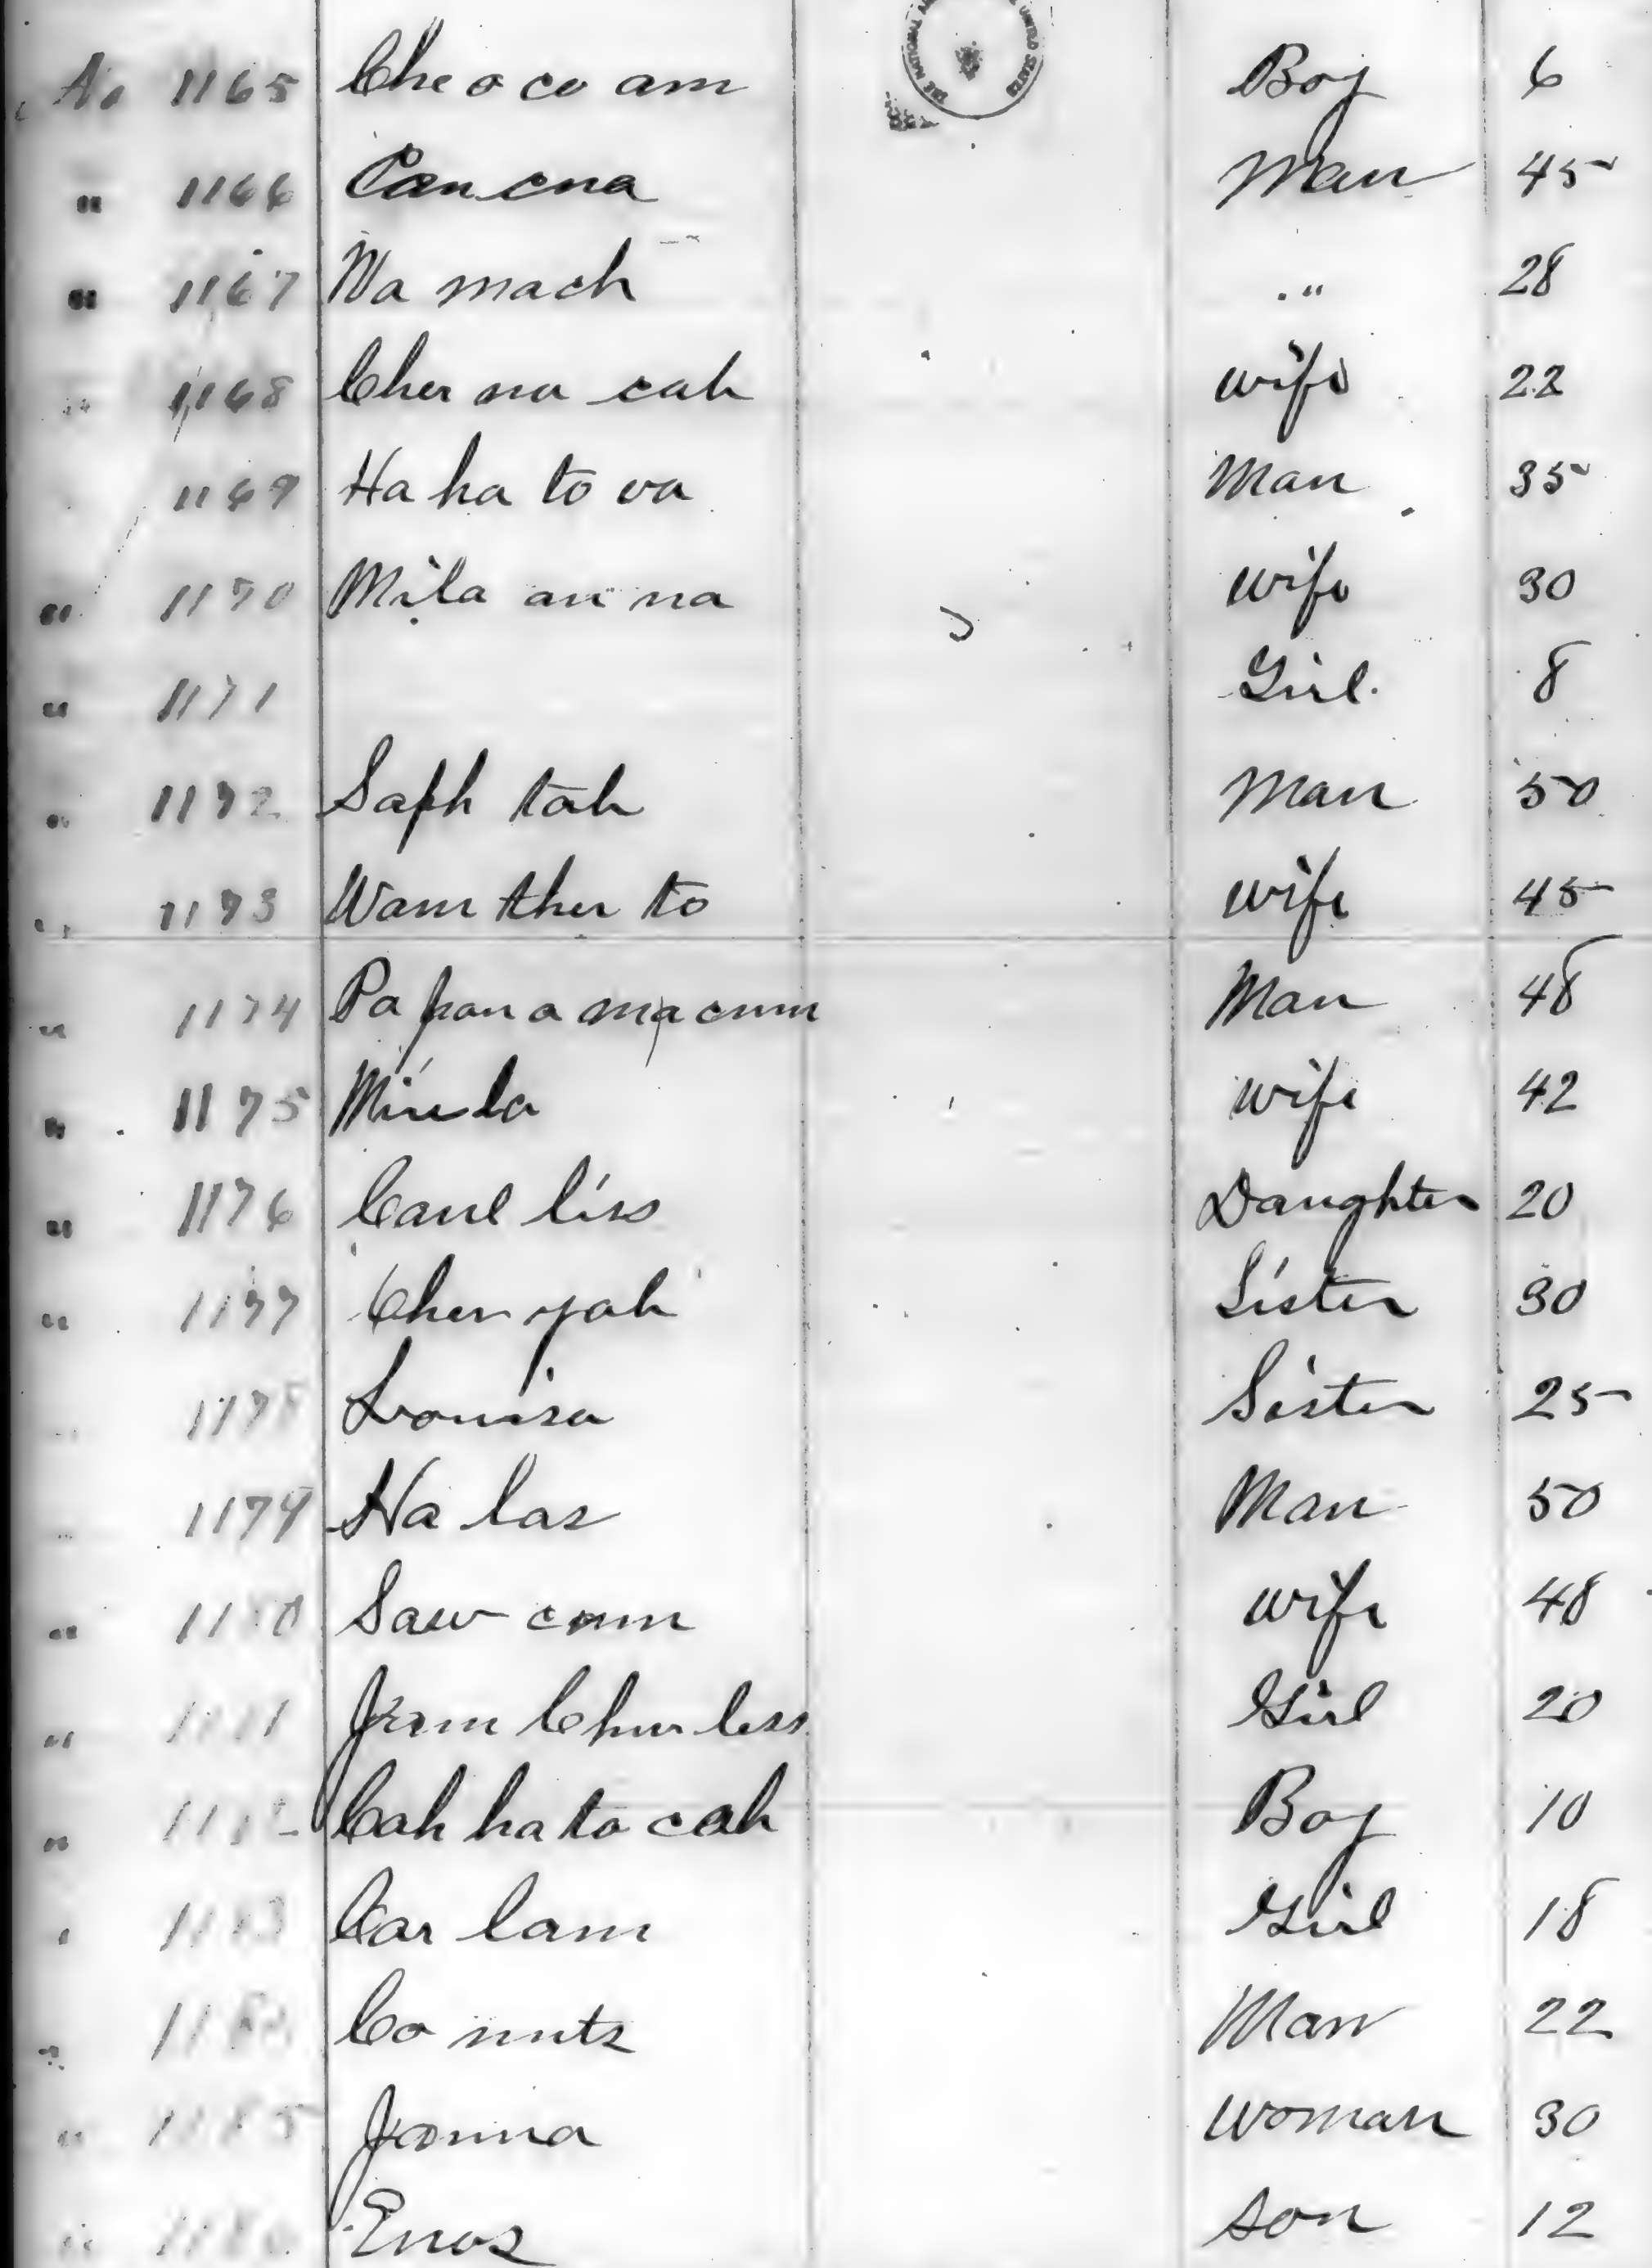 No 1165 Che o co am Boy 6
" 1166 Can cna Man 45
" 1167 Wa mach " 28
" 1168 Cher na cah wife 22
1169 Ha ha to va Man 35
" 1170 Mila an na wife 30
" 1171 Girl 8
" 1172 Saph tah Man 50
" 1173 Wam ther to wife 45
" 1174 Pa pan a ma cum Man 48
" 1175 wife 42
" 1176 Daughter 20
" 1177 Cher yah Sister 30
1178 Louisa Sister 25
1179 Na las Man 50
" 1180 Saw cum wife 48
" 1181 Girl 20
" 1182 Cah ha to cah Boy 10
1183 Car lam Girl 18
" 1184 Co nuts Man 22
" 1185 woman 30
" 1186 Enos son 12